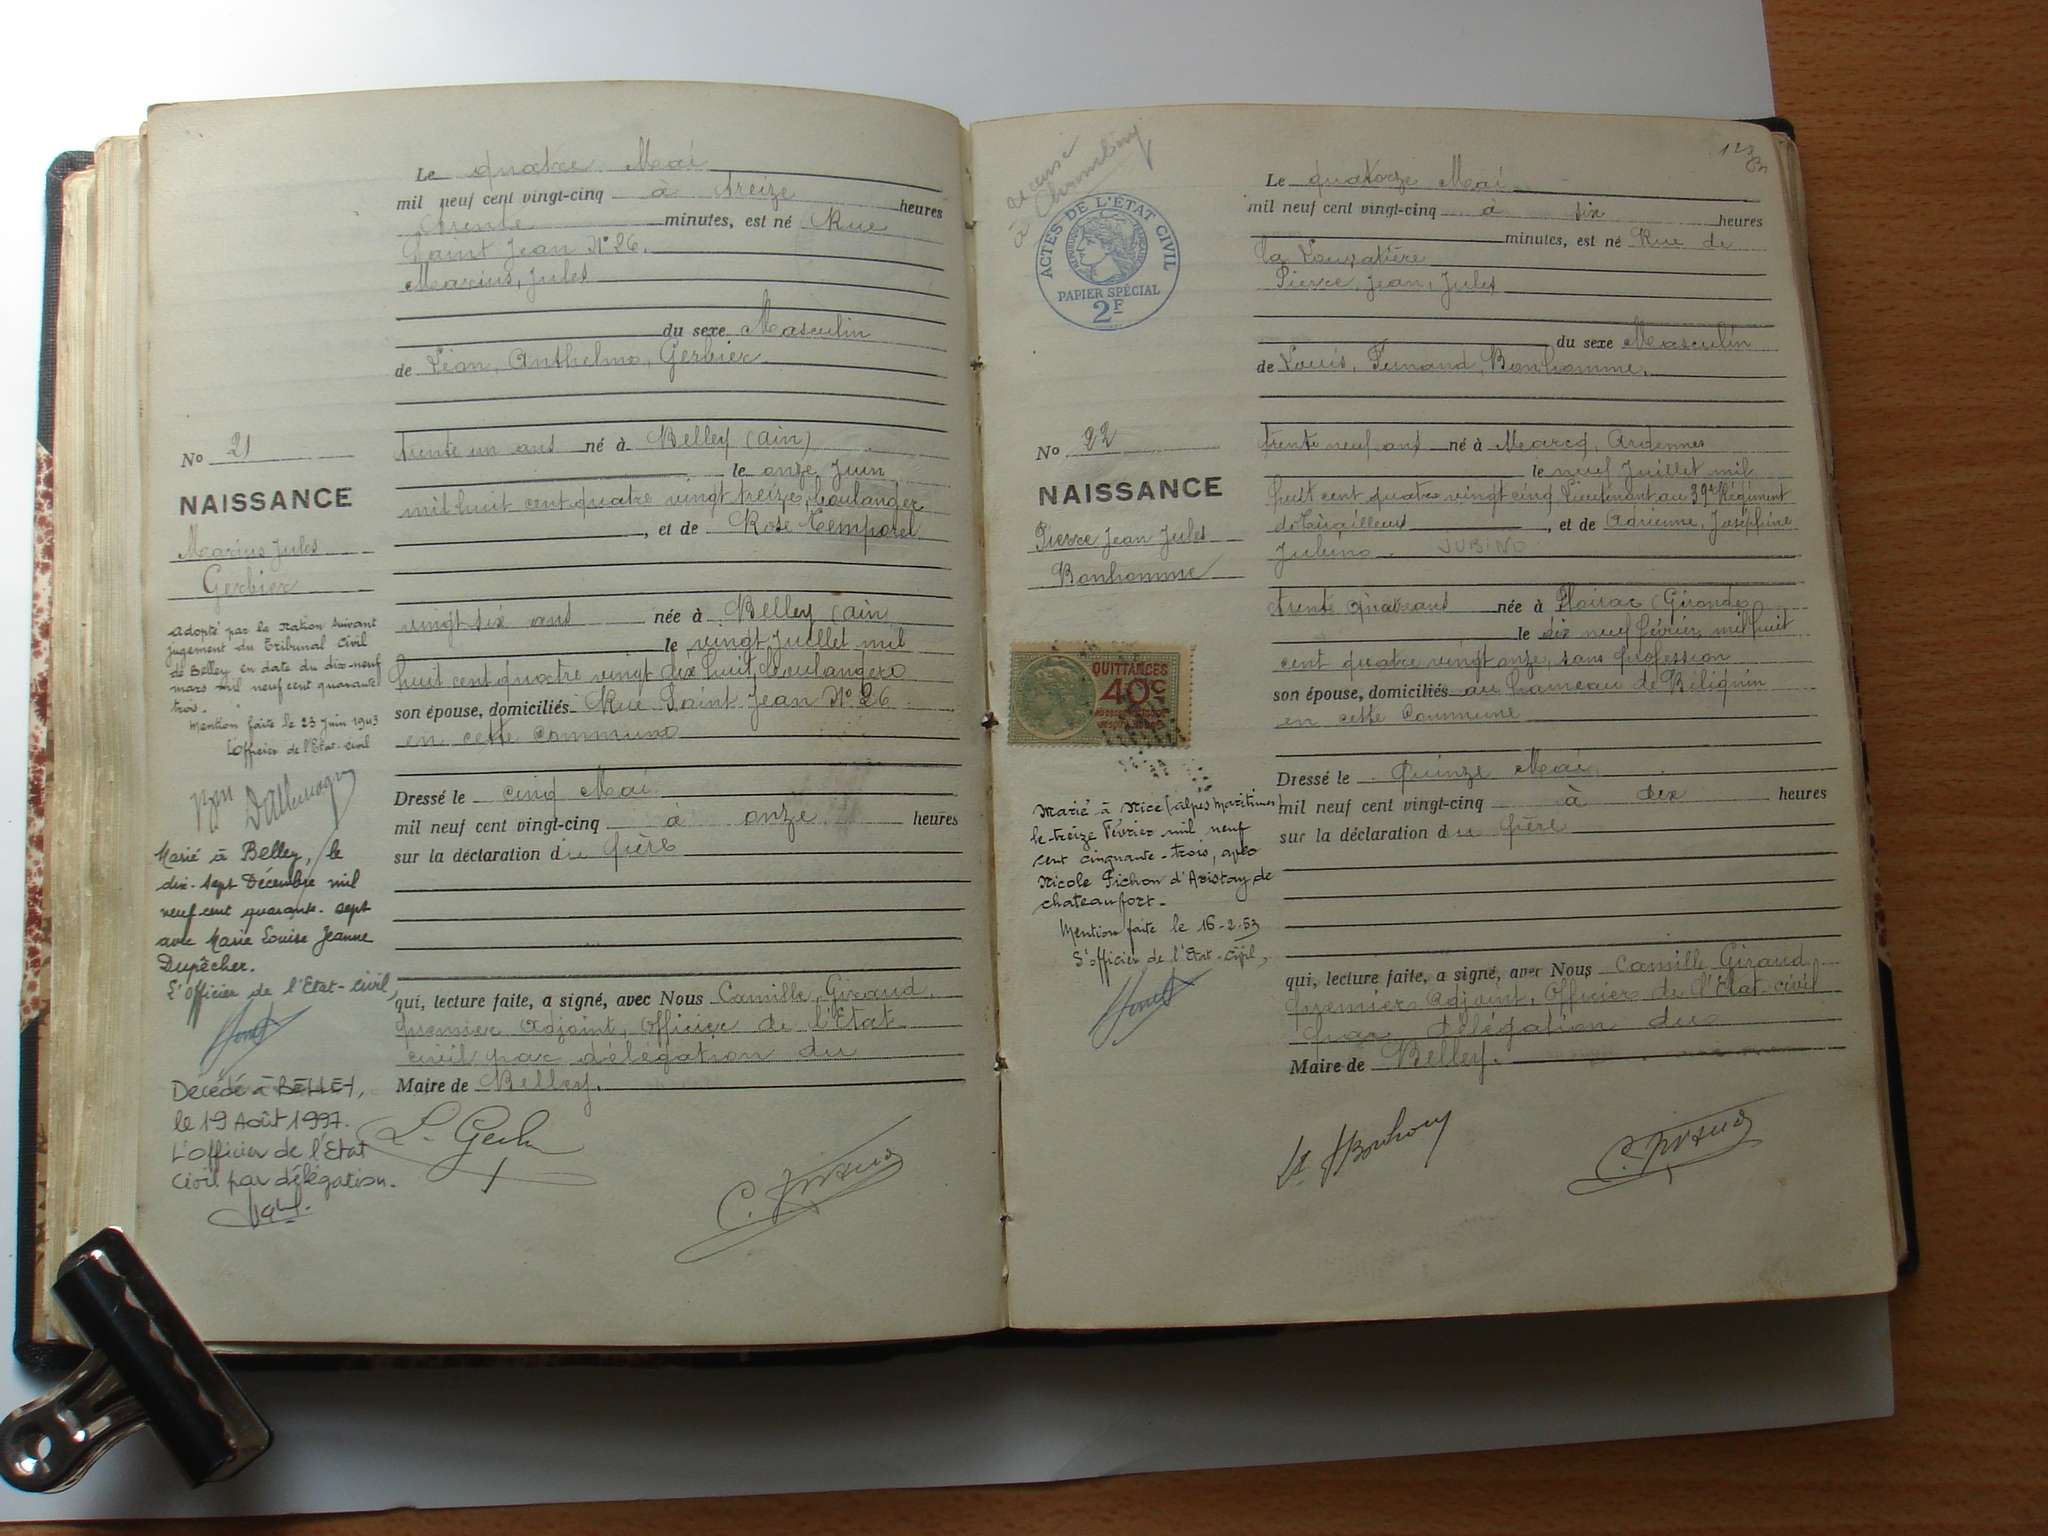 Le quatre Mai
mil neuf cent vingt-cinq à treize heures
trente minutes, est né Rue
Saint Jean N° 26.
Marius, Jules
du sexe Masculin
de Léon, Anthelme, Gerbier
No 21
NAISSANCE
Marius Jules
Gerbier
trente un ans né à Belley (ain)
le onze Juin
mil huit cent quatre vingt treize, boulanger
, et de Rose Temporel
vingt six ans née à Belley (ain
le vingt Juillet mil
huit cent quatre vingt dix huit, boulangère
son épouse, domiciliés Rue Saint Jean N° 26
en cette commune
Dressé le cinq Mai
mil neuf cent vingt-cinq à onze heures
sur la déclaration du père
qui, lecture faite, a signé, avec Nous Camille, Giraud,
premier adjoint, officier de l'Etat
civil par délégation du
Maire de Belley.
L. Gerbier
C. Giraud
adopté par la Nation suivant
jugement du Tribunal Civil
de Belley en date du dix-neuf
mars mil neuf cent quarante
trois.
Mention faite le 23 Juin 1943
L'officier de l'Etat-civil
Marié à Belley, le
dix-sept Décembre mil
neuf cent quarante-sept
avec Marie Louise Jeanne
Dupêcher.
L'Officier de l'Etat-civil,
Décédé à BELLEY,
le 19 Août 1997.
L'Officier de l'Etat
Civil par délégation.
recensé
à Chambéry
ACTES DE L'ÉTAT CIVIL
RÉPUBLIQUE FRANÇAISE
PAPIER SPÉCIAL
2F
Le quatorze Mai
mil neuf cent vingt-cinq à six heures
minutes, est né Rue de
la Louvatière
Pierre, Jean, Jules
du sexe Masculin
de Louis, Fernand, Bonhomme,
No 22
NAISSANCE
Pierre Jean Jules
Bonhomme
trente neuf ans né à Marcq, Ardennes
le neuf Juillet mil
huit cent quatre vingt cinq, Lieutenant au 39e Régiment
de Tirailleurs, et de Adrienne, Joséphine
Jubino. JUBINO
trente quatre ans née à Floirac (Gironde)
le dix neuf février mil huit
cent quatre vingt onze, sans profession
son épouse, domiciliés au hameau de Bilignin
en cette commune
Dressé le Quinze Mai
mil neuf cent vingt-cinq à dix heures
sur la déclaration du père
qui, lecture faite, a signé, avec Nous Camille, Giraud,
premier adjoint, officier de l'Etat-civil
par délégation du
Maire de Belley.
C. Giraud
QUITTANCES
40c
Marié à Nice (alpes maritimes)
le treize Février mil neuf
cent cinquante-trois, avec
Nicole Pichon d'Aristay de
chateaufort.
Mention faite le 16-2-53
L'officier de l'Etat-civil,